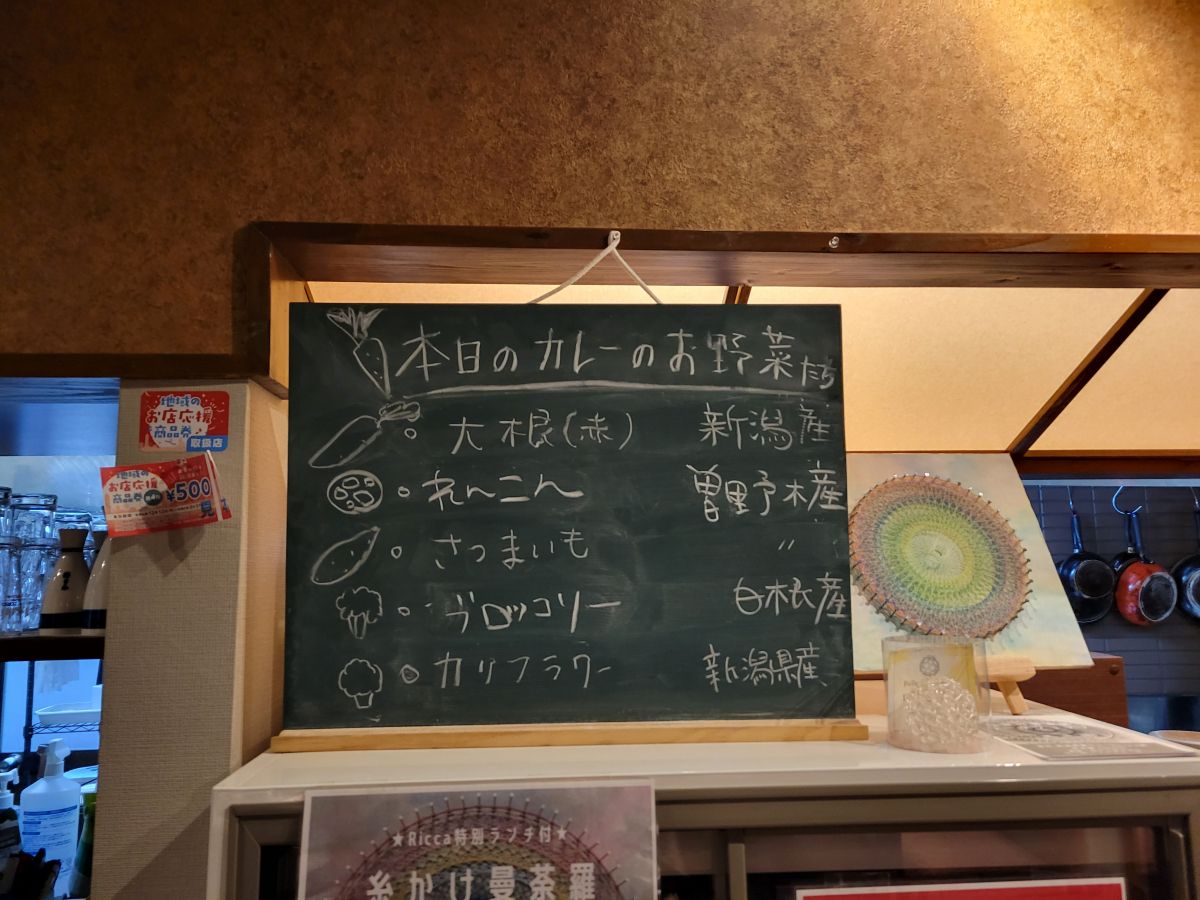 本日のカレーのお野菜たち
大根(赤) 新潟産
れんこん 曽野木産
さつまいも 〃
ブロッコリー 白根産
カリフラワー 新潟県産
地域の
お店応援
商品券
取扱店
地域の
お店応援
商品券 ¥500
★Ricca特別ランチ付★
糸かけ曼荼羅